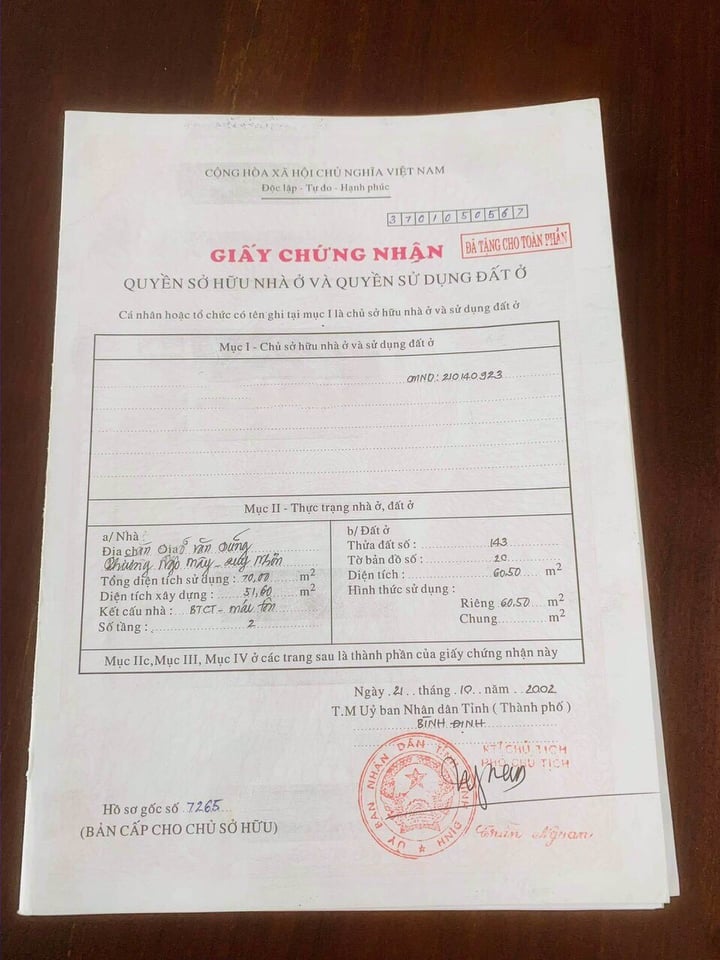 CỘNG HÒA XÃ HỘI CHỦ NGHĨA VIỆT NAM
Độc lập - Tự do - Hạnh phúc
3701050567
ĐÃ TẶNG CHO TOÀN PHẦN
GIẤY CHỨNG NHẬN
QUYỀN SỞ HỮU NHÀ Ở VÀ QUYỀN SỬ DỤNG ĐẤT Ở
Cá nhân hoặc tổ chức có tên ghi tại mục I là chủ sở hữu nhà ở và sử dụng đất ở
Mục I - Chủ sở hữu nhà ở và sử dụng đất ở
CMND: 210140923
Mục II - Thực trạng nhà ở, đất ở
a/ Nhà
Địa văn Dũng
Phường Ngô Mây - Quy Nhơn
Tổng diện tích sử dụng : 70,00 m²
Diện tích xây dựng : 51,60 m²
Kết cấu nhà : BTCT - mái tôn
Số tầng : 2
b/ Đất ở
Thửa đất số : 143
Tờ bản đồ số : 20
Diện tích : 60.50 m²
Hình thức sử dụng :
Riêng 60.50 m²
Chung m²
Mục IIc, Mục III, Mục IV ở các trang sau là thành phần của giấy chứng nhận này
Ngày 21 tháng 10 năm 2002
T.M Uỷ ban Nhân dân Tỉnh ( Thành phố )
BÌNH ĐỊNH
KT/ CHỦ TỊCH
PHÓ CHỦ TỊCH
ỦY BAN NHÂN DÂN TỈNH BÌNH ĐỊNH
Hồ sơ gốc số 7265
(BẢN CẤP CHO CHỦ SỞ HỮU)